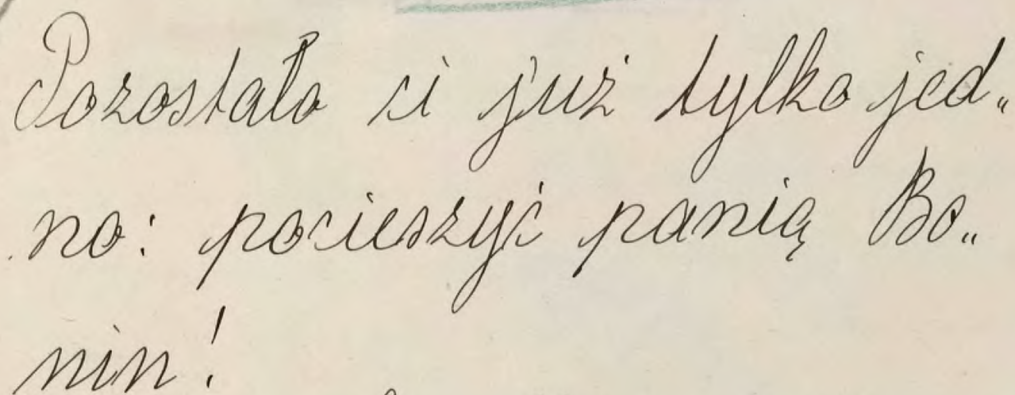 Pozostało ci już tylko jed„
no: pocieszyć panią Bo„
nin!